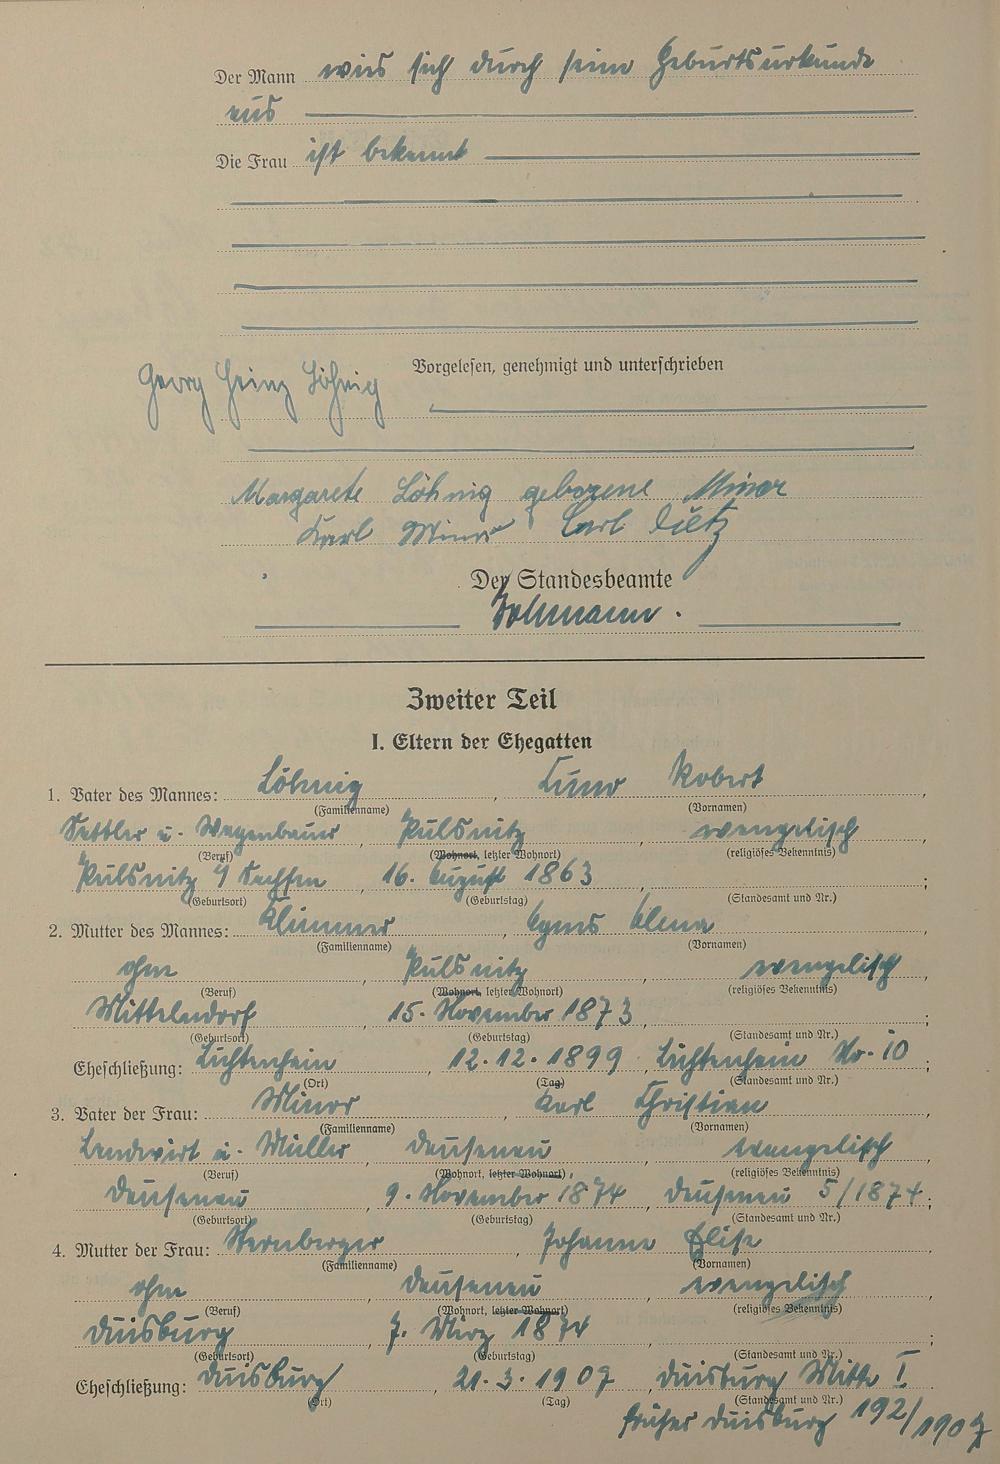 Der Mann wies sich durch seine Geburtsurkunde
aus
Die Frau ist bekannt
Vorgelesen, genehmigt und unterschrieben
Georg Heinz Löhnig
Margarete Löhnig geborene Minor
Karl Minor Carl Dietz
Der Standesbeamte
Zweiter Teil
I. Eltern der Ehegatten
1. Vater des Mannes: Löhnig, Robert,
(Familienname) (Vornamen)
Sattler u. Wagenbauer, Pulsnitz, evangelisch
(Beruf) (Wohnort, letzter Wohnort) (religiöses Bekenntnis)
Pulsnitz Sachsen, 16. August 1863, ;
(Geburtsort) (Geburtstag) (Standesamt und Nr.)
2. Mutter des Mannes: Klimmer, Agnes Alma,
(Familienname) (Vornamen)
ohne, Pulsnitz, evangelisch,
(Beruf) (Wohnort, letzter Wohnort) (religiöses Bekenntnis)
Mittelndorf, 15. November 1873, ;
(Geburtsort) (Geburtstag) (Standesamt und Nr.)
Eheschließung: Lichtenhein, 12.12.1899, Lichtenhein Nr. 10;
(Ort) (Tag) (Standesamt und Nr.)
3. Vater der Frau: Minor, Karl Christian,
(Familienname) (Vornamen)
Landwirt u. Müller, Dausenau, evangelisch
(Beruf) (Wohnort, letzter Wohnort) (religiöses Bekenntnis)
Dausenau, 9. November 1874, Dausenau 5/1874;
(Geburtsort) (Geburtstag) (Standesamt und Nr.)
4. Mutter der Frau: Sternberger, Johanne Elise,
(Familienname) (Vornamen)
ohne, Dausenau, evangelisch,
(Beruf) (Wohnort, letzter Wohnort) (religiöses Bekenntnis)
Duisburg, 7. März 1874, ;
(Geburtsort) (Geburtstag) (Standesamt und Nr.)
Eheschließung: Duisburg, 21.3.1907, Duisburg Mitte I.
(Ort) (Tag) (Standesamt und Nr.)
früher Duisburg 192/1907